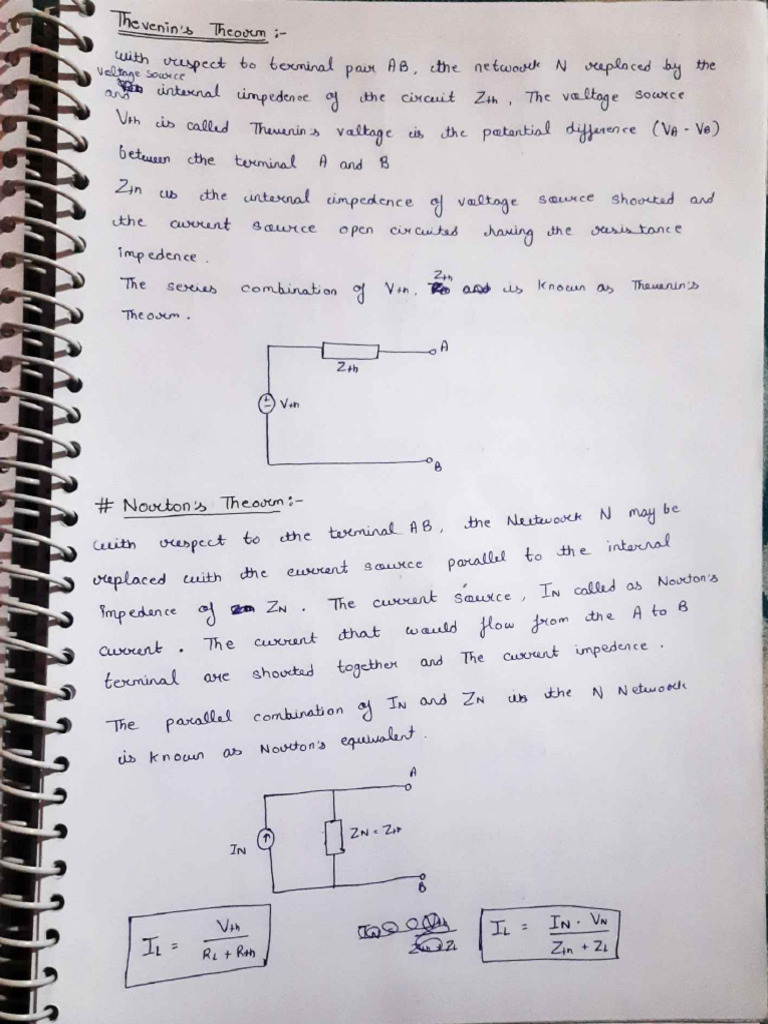 Thevenin's Theorem :-
with respect to terminal pair AB, the network N replaced by the
voltage source
and internal impedence of the circuit Zth, The voltage source
Vth is called Thevenin's voltage is the potential difference (VA - VB)
between the terminal A and B
Zth is the internal impedence of voltage source shorted and
the current source open circuited having the resistance
impedence.
The series combination of Vth, Zth is known as Thevenin's
Theorm.
Zth
A
Vth
B
# Norton's Theorm :-
with respect to the terminal AB, the Network N may be
replaced with the current source parallel to the internal
impedence of ZN. The current source, IN called as Norton's
current. The current that would flow from the A to B
terminal are shorted together and The current impedence.
The parallel combination of IN and ZN is the N Network
is known as Norton's equivalent.
A
IN
ZN = Zth
B
IL = Vth / RL + Rth
IL = IN · VN / Zth + ZL